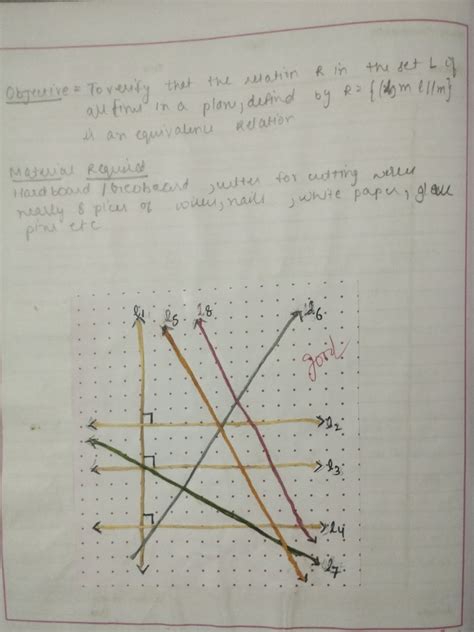 Objective = To verify that the relation R in the set L of
all lines in a plane, defind by R = {(l,m) l||m}
is an equivalence Relation
Material Required
Hardboard / , cutter for cutting wires
nearly 8 pices of wires, nails , white paper, glue
pins etc
l1 l5 l8 l6
good
l2
l3
l4
l7